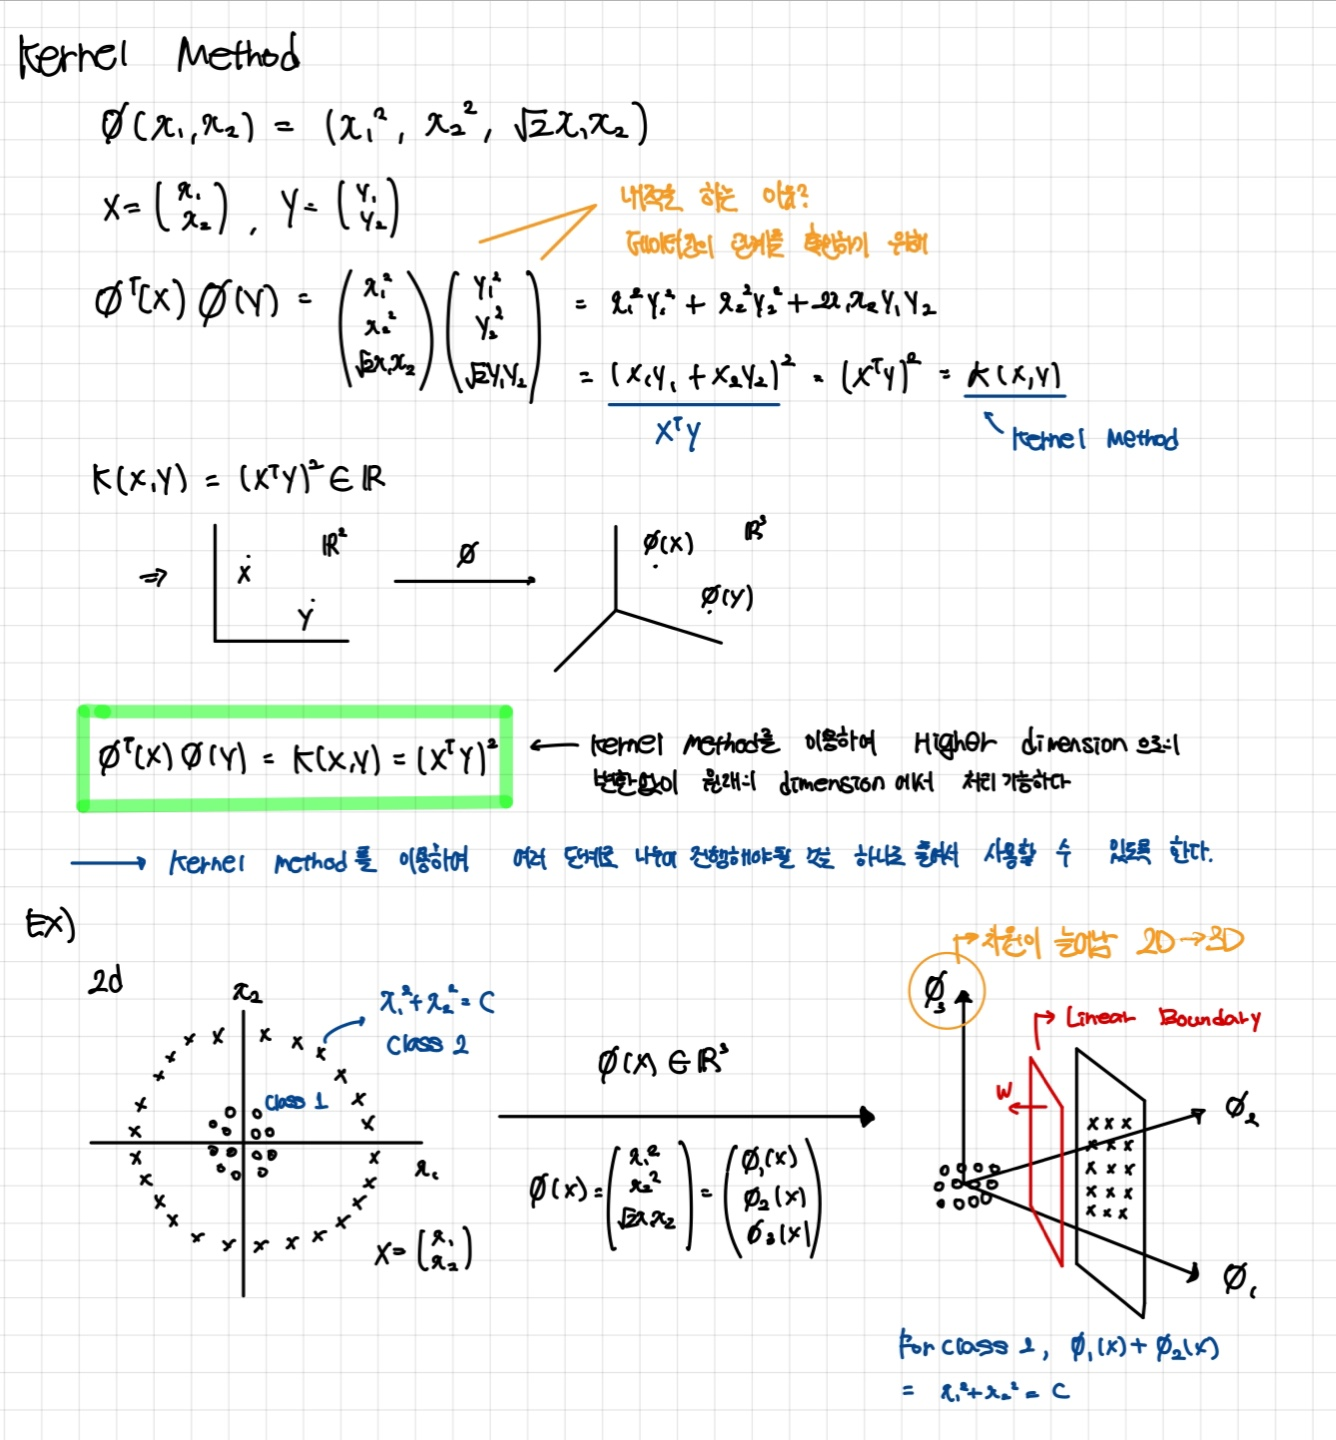 Kernel Method
ø(x₁,x₂) = (x₁², x₂², √2x₁x₂)
X= (x₁ x₂), Y= (Y₁ Y₂)
내적을 하는 이유?
데이터간의 관계를 확인하기 위해
øᵀ(X) ø(Y) = (x₁² x₂² √2x₁x₂) (Y₁² Y₂² √2Y₁Y₂) = x₁²Y₁² + x₂²Y₂² + 2x₁x₂Y₁Y₂
= (X₁Y₁ + X₂Y₂)² = (XᵀY)² = K(X,Y)
XᵀY
Kernel Method
K(X,Y) = (XᵀY)² ∈ ℝ
⇒ X Y ℝ² ø ø(X) ø(Y) ℝ³
øᵀ(X) ø(Y) = K(X,Y) = (XᵀY)² ← Kernel Method를 이용하여 Higher dimension 으로의
변환없이 원래의 dimension 에서 처리 가능하다
→ Kernel Method를 이용하여 여러 단계로 나눠 진행해야될 것을 하나로 줄여서 사용할 수 있도록 한다.
EX)
차원이 늘어남 2D→3D
2d
x₂
x₁²+x₂² = C
Class 2
Class 1
x₁
X= (x₁ x₂)
ø(X) ∈ ℝ³
ø(x) = (x₁² x₂² √2x₁x₂) = (ø₁(x) ø₂(x) ø₃(x))
ø₃
Linear Boundary
W
ø₂
ø₁
For class 2, ø₁(x) + ø₂(x)
= x₁²+x₂² = C